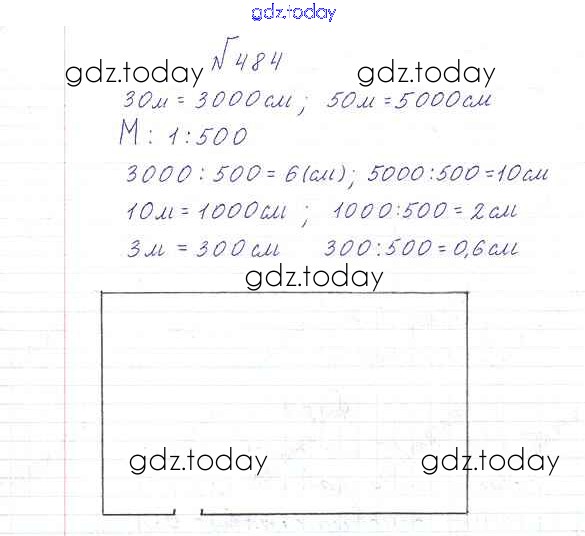 gdz.today
№ 484
gdz.today gdz.today
30м = 3000см; 50м = 5000см
М: 1:500
3000 : 500 = 6(см); 5000:500=10см
10м = 1000см; 1000:500 = 2см
3м = 300см 300:500 = 0,6см
gdz.today
gdz.today gdz.today